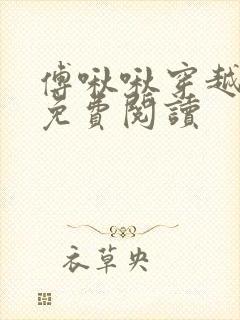 傅啾啾穿越
免費閱讀
衣草央